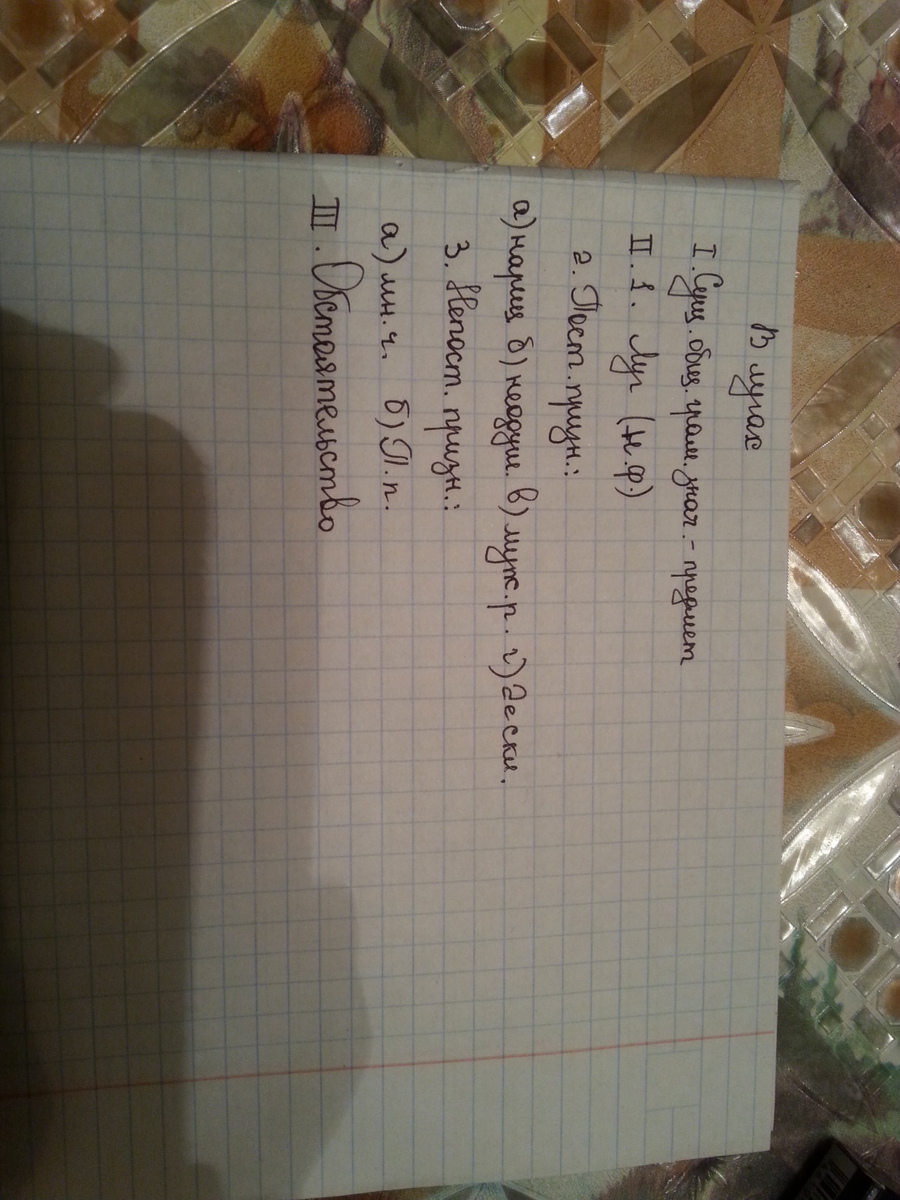 В лугах
I. Сущ. общ. грам. знач. - предмет
II. 1. Луг (н.ф.)
2. Пост. призн.:
а) нариц б) неодуш. в) муж. р. г) 2е скл.
3. Непост. призн.:
а) мн. ч. б) П. п.
III. Обстоятельство